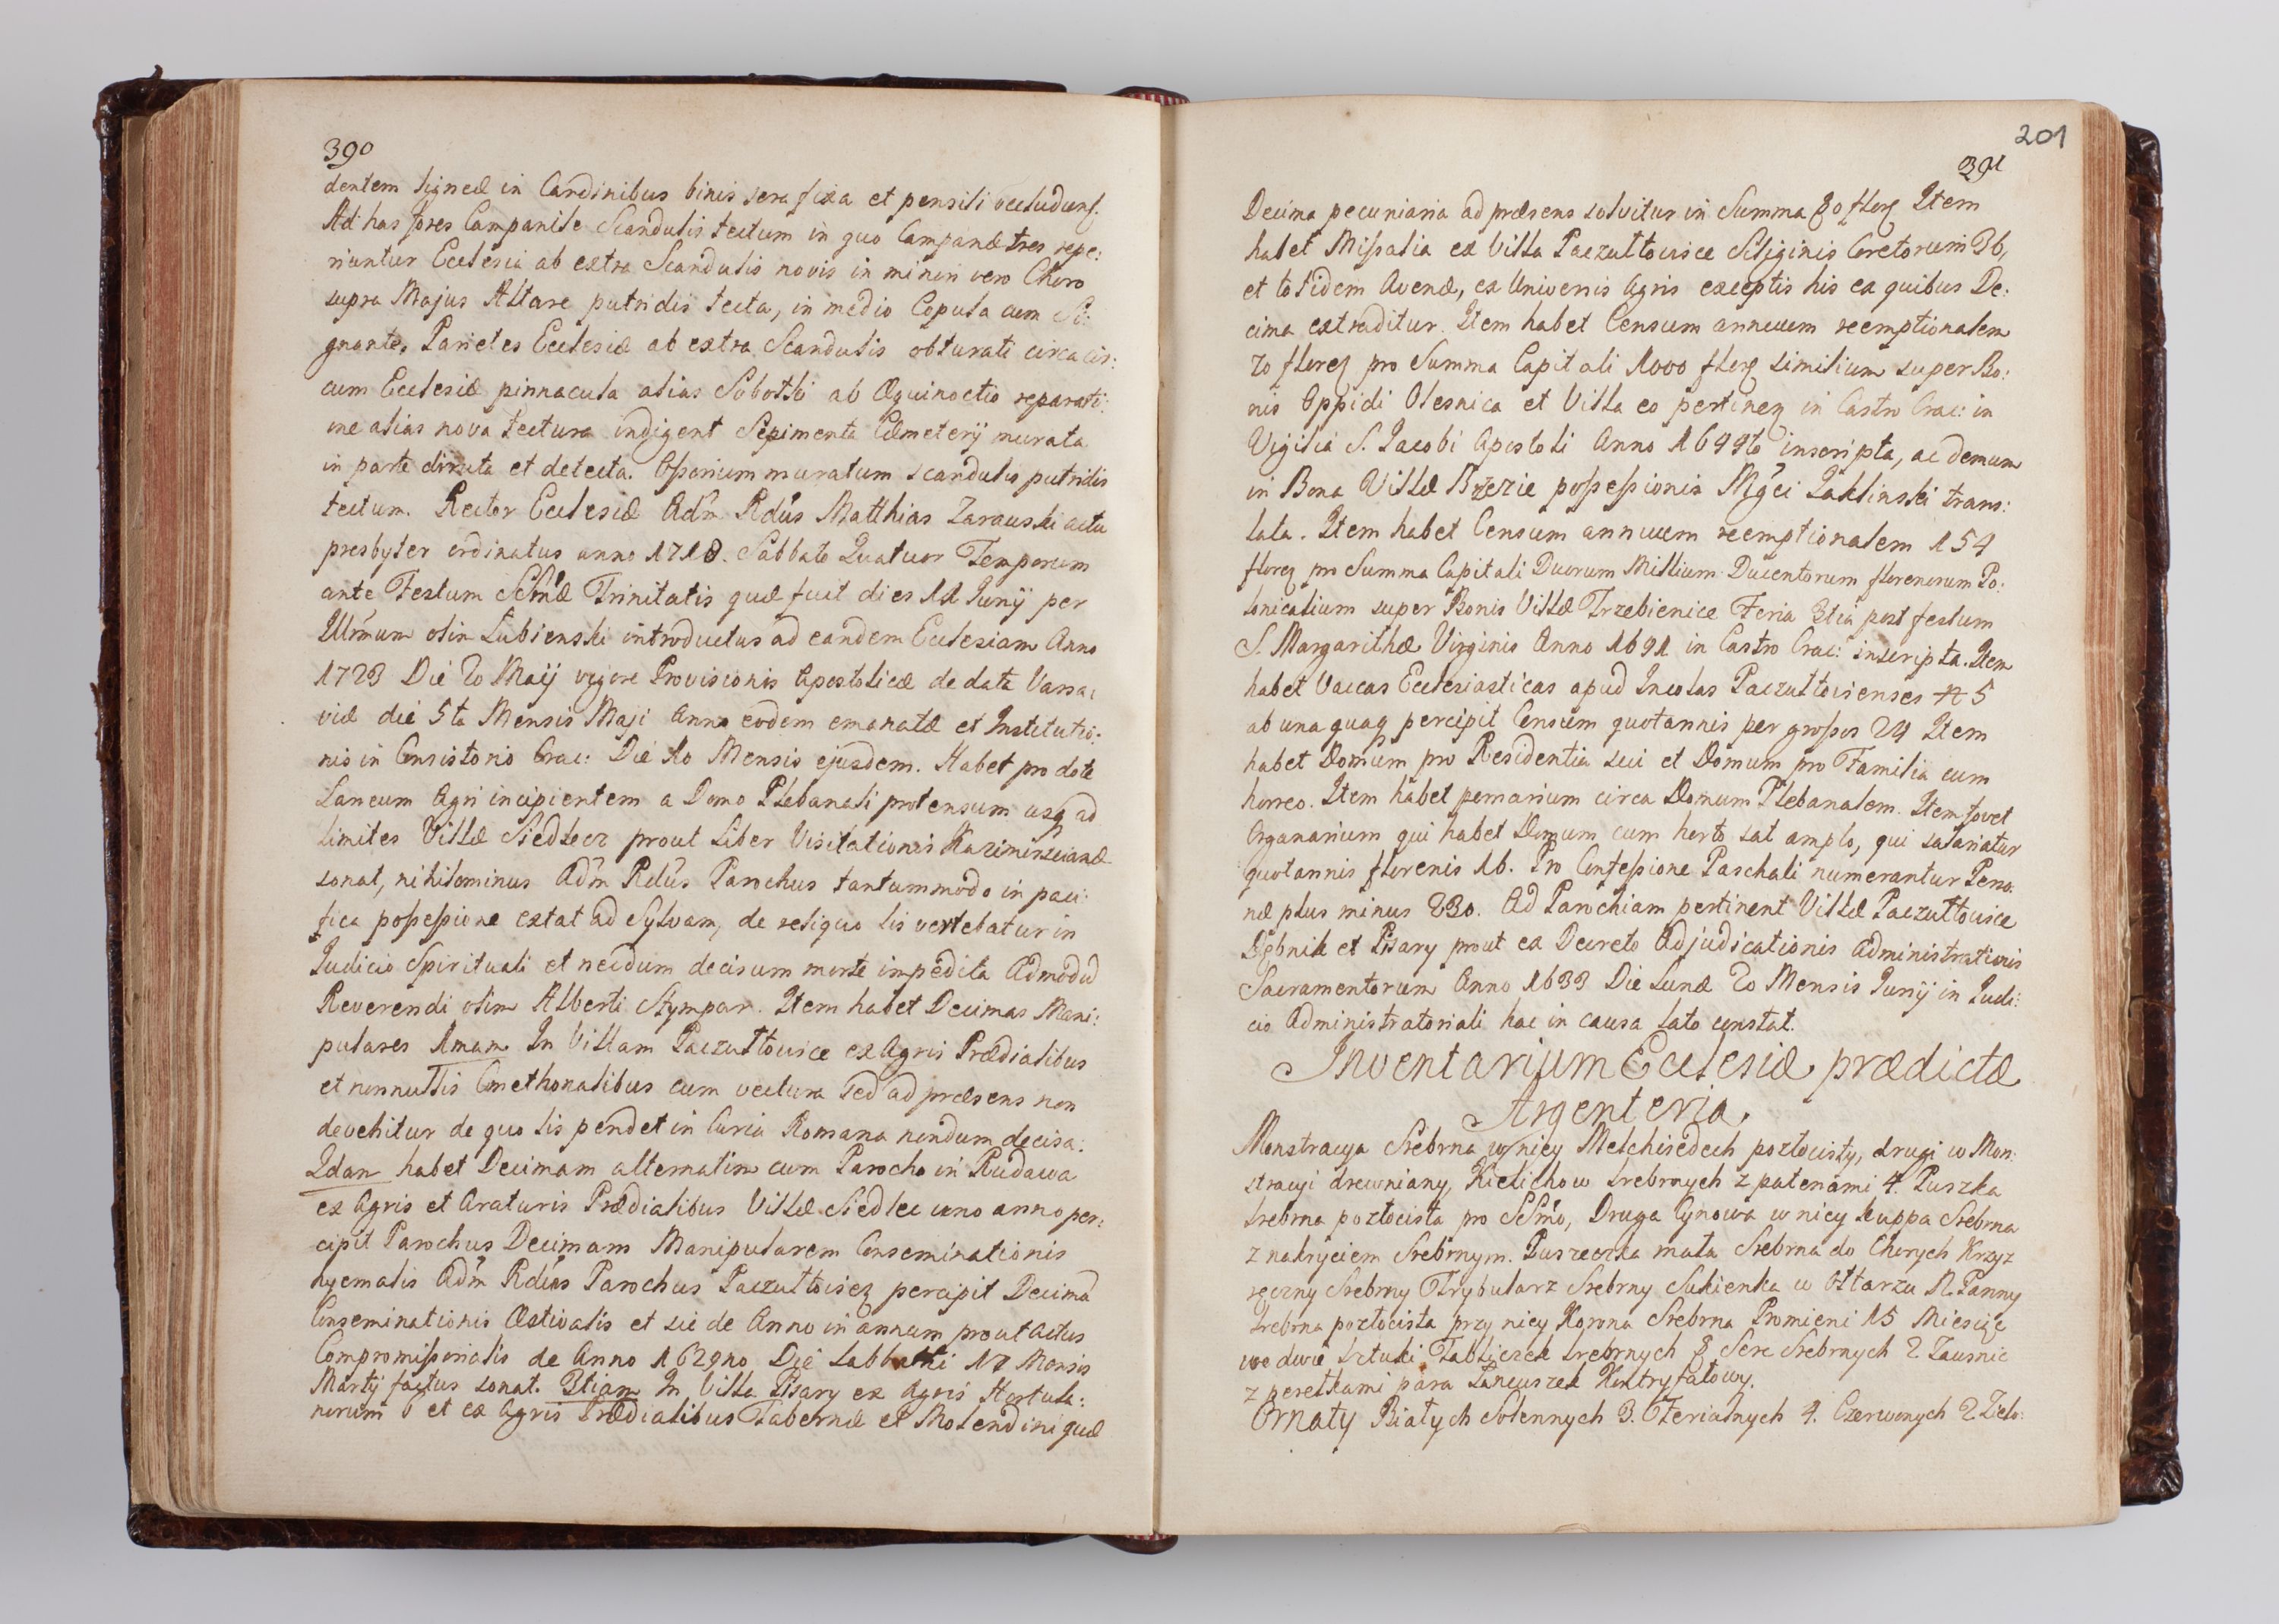 390
dentem ligneæ in Cardinibus binis sera fixa et pensili occludunt.
Ad has fores Campanile Scandulis tectum in quo Campanæ tres repe:
riuntur Ecclesia ab extra Scandulis novis in minori vero Choro
supra Majus Altare putridis tecta, in medio Copula cum Si:
gnante. Parietes Ecclesiæ ab extra Scandulis obturati circa cir:
cum Ecclesiæ pinnacula alias Sobotki ab Æquinoctio reparati:
one alias nova tectura indigent Sepimenta Cæmeterij murata
in parte diruta et detecta. Ossorium muratum scandulis putridis
tectum. Rector Ecclesiæ Adm̃ Rdus Matthias Zarauski actu
presbyter ordinatus anno 1718. Sabbato Quatuor Temporum
ante Festum SSmæ Trinitatis quæ fuit dies 11 Junij per
Illmum olim Łubienski introductus ad eandem Ecclesiam Anno
1723 Die 20 Maij vigore Provisionis Apostolicæ de data Varsa:
viæ die 5ta Mensis Maji Anno eodem emanatæ et Institutio:
nis in Consistorio Crac: Die 10 Mensis ejusdem. Habet pro dote
Laneum Agri incipientem a Domo Plebanali protensum usq ad
limites Villæ Siedlecz prout Liber Visitationis Kaziminscianæ
sonat, nihilominus Adm̃ Rdus Parochus tantummodo in paci:
fica possessione extat ad Sylvam, de reliquo lis vertebatur in
Judicio Spirituali et necdum decisum morte impedita Admodũ
Reverendi olim Alberti Stympar. Item habet Decimas Mani:
pulares 1mam In Villam Paczułtowice ex Agris Prædialibus
et nonnullis Cmethonalibus cum vectura sed ad præsens non
devehitur de quo lis pendet in Curia Romana nondum decisa.
2dam habet Decimam alternatim cum Parocho in Rudawa
ex Agris et Araturis Prædialibus Villæ Siedlec uno anno per:
cipit Parochus Decimam Manipularem Conseminationis
hyemalis Adm̃ Rdus Parochus Paczułtovieñ percipit Decimã
Conseminationis Æstivalis et sic de Anno in annum prout Actus
Compromissorialis de Anno 1629no Die Sabbathi 17 Mensis
Martij factus sonat. 3tiam In Villa Pisary ex Agris Hortula:
norum 6 et ex Agris Prædialibus Tabernæ et Molendini quæ
201
391
Decima pecuniaria ad præsens solvitur in Summa 80 floreñ Item
habet Missalia ex Villa Paczułtowice Siliginis Coretorum 36,
et totidem Avenæ, ex Universis Agris exceptis his ex quibus De:
cima extraditur. Item habet Censum annuum reemptionalem
70 floreñ pro Summa Capitali 1000 floreñ similium super Bo:
nis Oppidi Olesnica et Villa eo pertineñ in Castro Crac: in
Vigilia S. Jacobi Apostoli Anno 1699to inscripta, ac demum
in Bona Villæ Brzezie possessionis Mgci Zaklinski trans:
lata. Item habet Censum annuum reemptionalem 154
floreñ pro Summa Capitali Duorum Millium Ducentorum florenorum Po:
lonicalium super Bonis Villæ Trzebienice Feria 3tia post festum
S. Margarithæ Virginis Anno 1691 in Castro Crac: inscripta. Item
habet Vaccas Ecclesiasticas apud Incolas Paczułtovienses N 5
ab una quaq percipit Censum quotannis per grossos 24 Item
habet Domum pro Residentia sui et Domum pro Familia cum
horreo. Item habet pomarium circa Domum Plebanalem. Item fovet
Organarium qui habet Domum cum horto sat amplo, qui salariatur
quotannis florenis 16. Pro Confessione Paschali numerantur Perso:
næ plus minus 230. Ad Parochiam pertinent Villæ Paczułtowice
Dębnik et Pisary prout ex Decreto Adjudicationis Administrationis
Sacramentorum Anno 1633 Die Lunæ 20 Mensis Junij in Judi:
cio Administratoriali hac in causa lato constat.
Inventarium Ecclesiæ prædictæ
Argenteria.
Monstracya Srebrna w niey Melchisedech pozłocisty, drugi w Mon:
stracyi drewniany, Kielichow srebrnych z patenami 4. Puszka
srebrna pozłocista pro SSmo, Druga Cynowa w niey kuppa Srebrna
z nakryciem Srebrnym. Puszeczka mała Srebrna do Chorych Krzyz
ręczny Srebrny Trybularz Srebrny Sukienka w Ołtarzu N. Panny
srebrna pozłocista przy niey Korona Srebrna Promieni 15 Miesiąc
we dwie sztuki Tabliczek srebrnych 8 Serc Srebrnych 2 Zausnic
z perełkami para Łancuszek Kontryfałowy.
Ornaty Białych Solennych 3. Feryalnych 4. Czerwonych 2 Zielo: